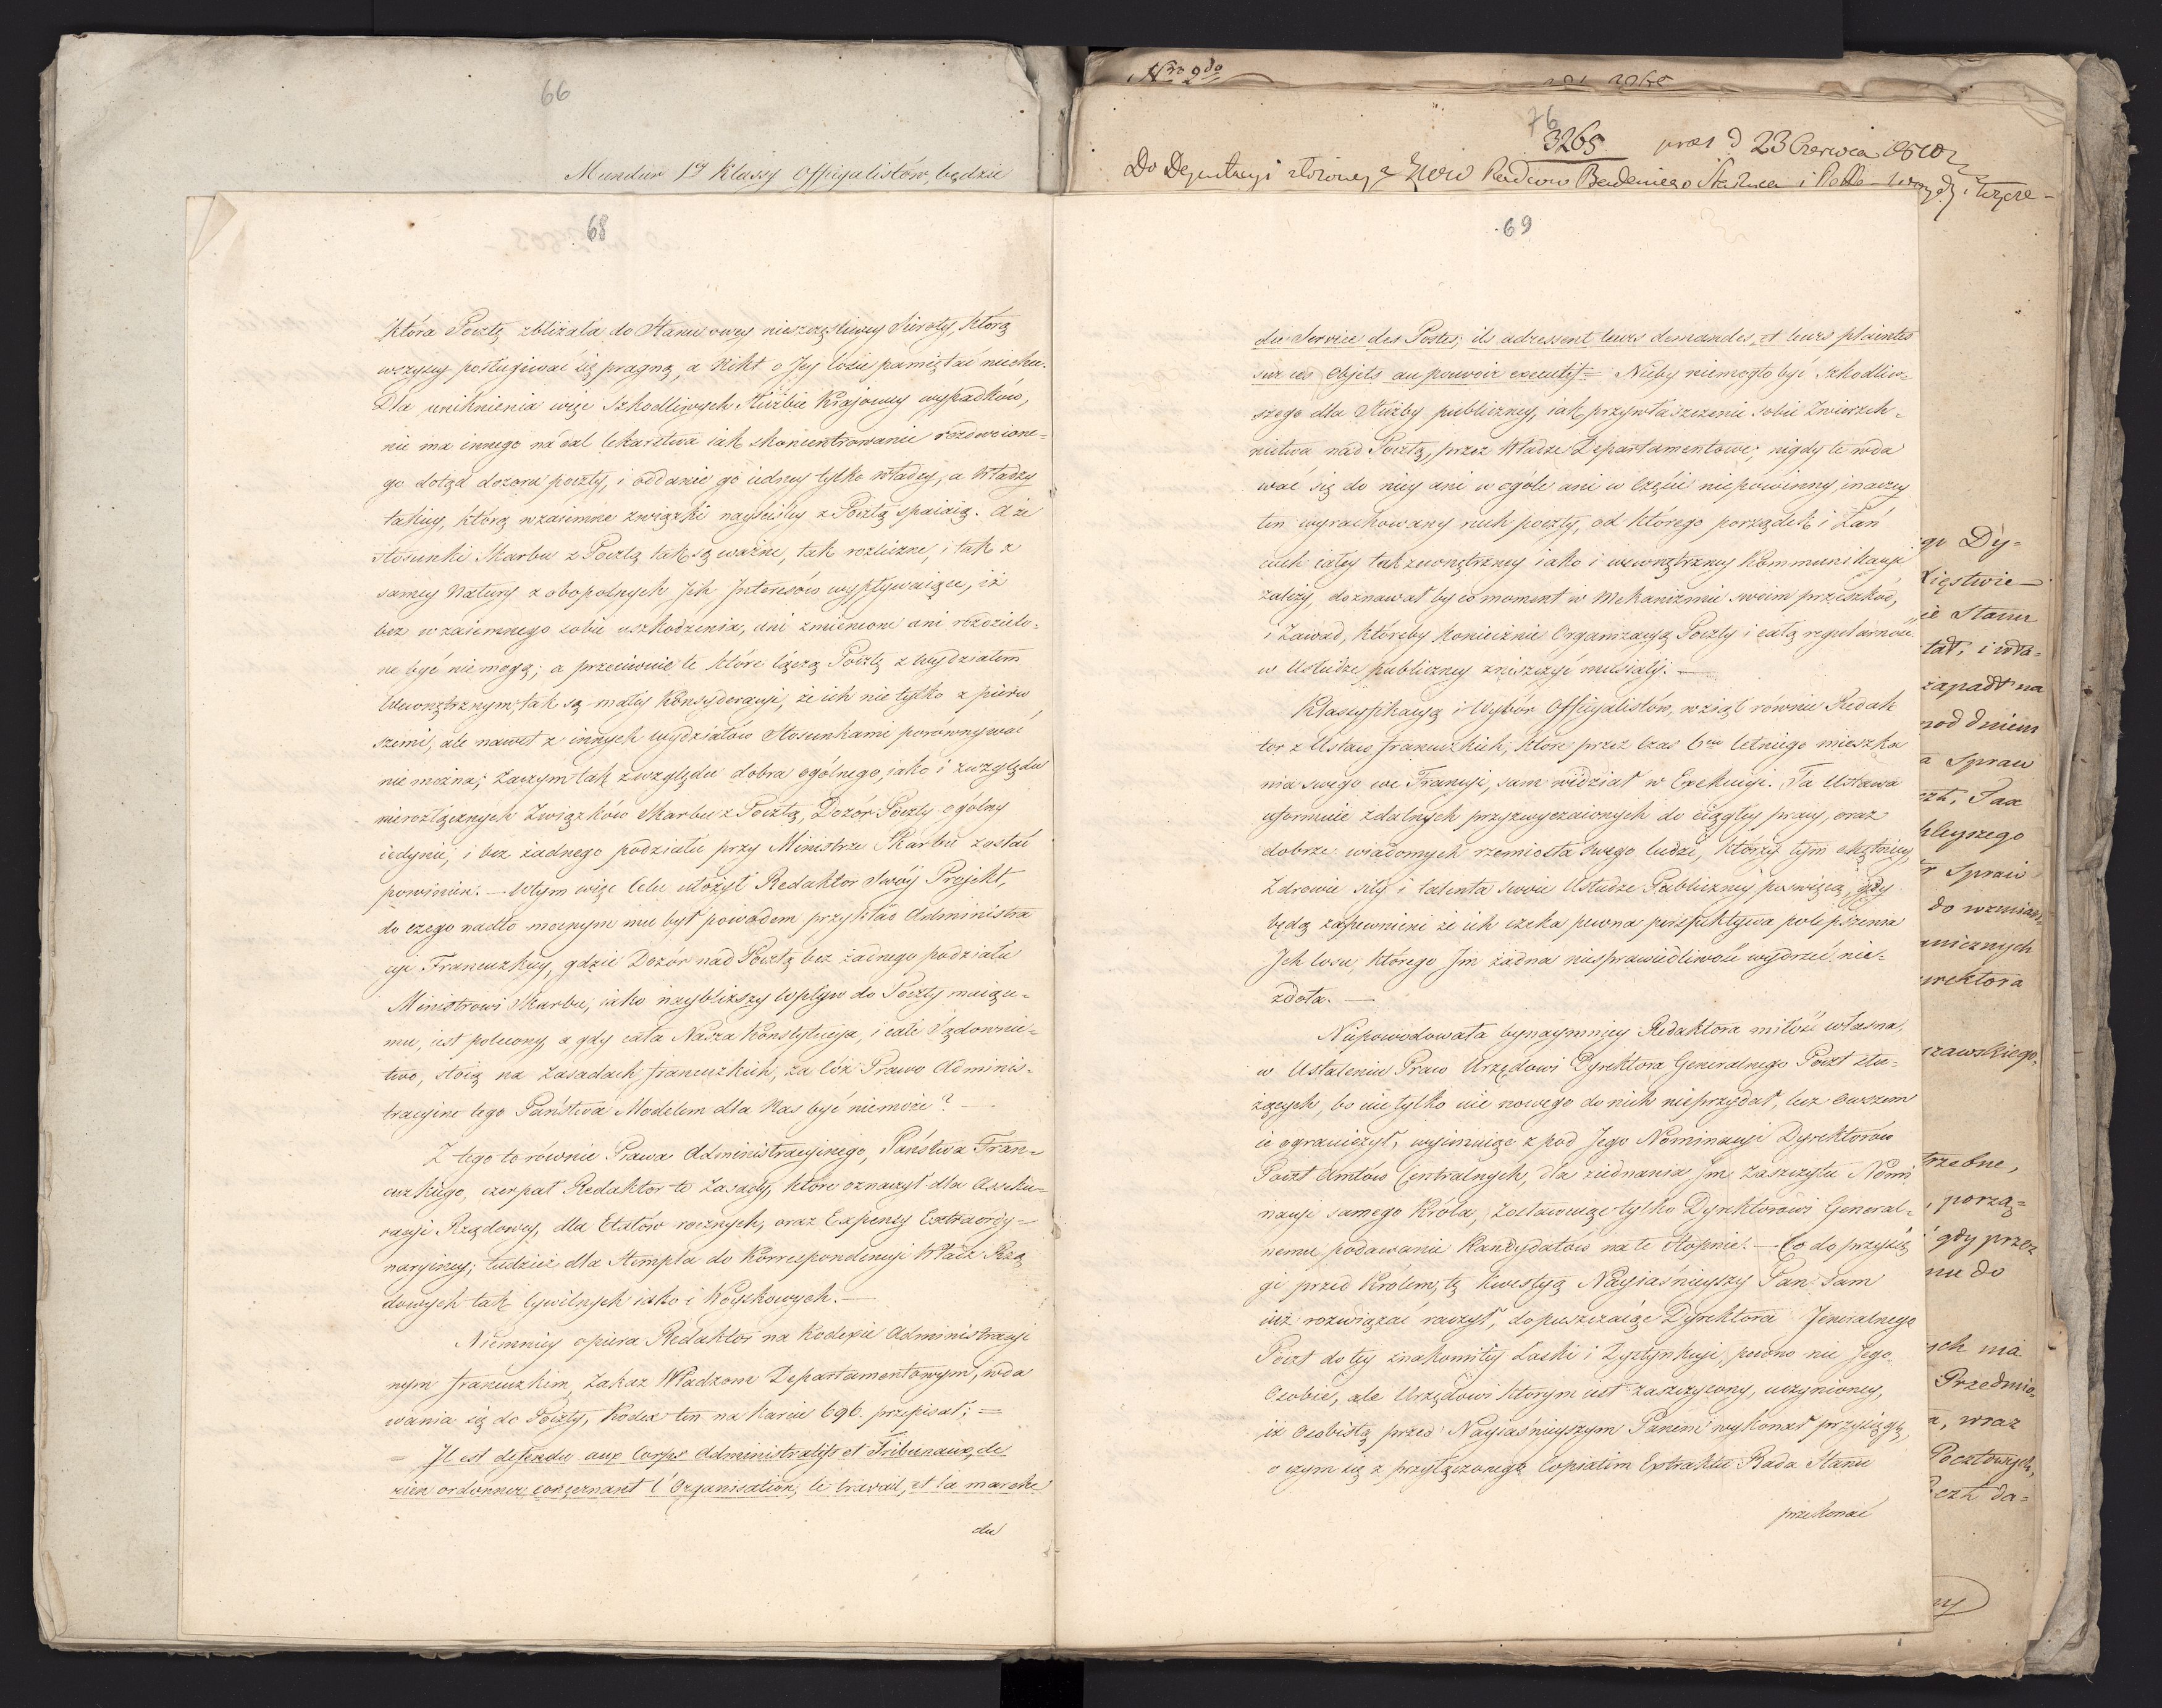 66
Mundur 1ey Klassy Officyalistów, będzie
68
która Pocztę zbliżała do Stanu owey nieszczęśliwey Sieroty, którą
wszyscy posługiwać się pragną, a Nikt o Jey losie pamiętać niechce.
Dla uniknienia więc Szkodliwych Służbie Krajowey wypadków,
nie ma innego nadal lekarstwa iak skoncentrowanie rozdwoione-
go dotąd dozoru poczty, i oddanie go iedney tylko władzy, a Władzy
takiey, którą wzaiemne związki nayściśley z Pocztą spaiaią. A że
stosunki Skarbu z Pocztą tak są ważne, tak rozliczne, i tak z
samey Natury z obopolnych Jch Jnteresów wypływaiące, iż
bez wzaiemnego sobie uszkodzenia, ani zmienione ani rozdzielo-
ne być nie mogą; a przeciwnie te które łączą Pocztę z Wydziałem
Wewnętrznym, tak są małey Konsyderacyi, że ich nie tylko z pierw
szemi, ale nawet z innych wydziałów Stosunkami porównywać
nie można; Zaczym tak zwzględu dobra ogólnego, iako i zwzględu
nierozłącznych Związków Skarbu z Pocztą, Dozór Poczty ogólny
iedynie, i bez żadnego podziału przy Ministrze Skarbu zostać
powinien. — Wtym więc Celu ułożył Redaktor Swóy Projekt,
do czego nadto mocnym mu był powodem przykład Administra
cyi Francuzkiey, gdzie Dozór nad Pocztą bez żadnego podziału
Ministrowi Skarbu, iako naybliższy wpływ do Poczty maiące-
mu, iest polecony, a gdy cała Nasza Konstytucyja, i całe Sądownic-
two, stoią na zasadach francuzkich, za cóż Prawo Adminis-
tracyjne tego Państwa Modelem dla Nas być niemoże? —
Z tego to równie Prawa Administracyjnego, Państwa Fran-
cuzkiego, czerpał Redaktor te Zasady, które oznaczył dla Asseku-
racyi Rządowey, dla Etatów rocznych, oraz Expensy Extraordy-
naryiney; tudzież dla Stempla do Korrespondencyi Władz Rzą
dowych tak Cywilnych iako i Woyskowych. —
Niemniey opiera Redaktor na Kodexie Administracyi
nym francuzkim, Zakaz Władzom Departamentowym, wda
wania się do Poczty, Kodex ten na karcie 696. przepisał; =
= Jl est defendu aux Corps Administratifs et Tribunaux, de
rien ordonner concernant l'Organisation, le travail, et la marche
du
Nro 2do
76
3265 prae: d 23 Czerwca 1810
Do Deputacyi złożoney z
69
du Service des Postes; ils adressent leurs demandes, et leurs plaintes
sur ces Objets au pouvoir executif = Niéby niemogło być Szkodliw-
szego dla Służby publiczney, iak przywłaszczenie sobie Zwierzch-
nictwa nad Pocztą, przez Władze Departamentowe; nigdy te wda
wać się do niey ani w ogóle ani w Części niepowinny, inaczey
ten wyrachowany ruch poczty, od którego porządek i Łań
cuch całey tak zewnętrzney iako i wewnętrzney Kommunikacyi
zależy, doznawał by co moment w Mekanizmie swoim przeszkód,
i Zawad, któreby koniecznie Organizacyą Poczty i całą regularność
w Usłudze publiczney zniszczyć musiały. —
Klassyfikacyą i Wybór Officyalistów, wziął równie Redak
tor z Ustaw francuzkich, które przez Czas 6cio letniego mieszka
nia swego we Francyi, sam widział w Exekucyi. Ta Ustawa
uformuie zdalnych przyzwyczaionych do ciągłey pracy, oraz
dobrze wiadomych rzemiosła swego ludzi, którzy tym chętniey
Zdrowie siły i talenta swoie Usłudze Publiczney poswięcą, gdy
będą zapewnieni że ich czeka pewna perspektywa polepszenia
Jch losu, którego Jm żadna niesprawiedliwość wydrzeć nie-
zdoła. —
Niepowodowała bynaymniey Redaktora miłość własna,
w Ustaleniu Praw Urzędowi Dyrektora Generalnego Poczt słu-
żących, bo nietylko nic nowego do nich nieprzydał, lecz owszem
ie ograniczył, wyimuiąc z pod Jego Nominacyi Dyrektorów
Poczt Amtów Centralnych, dla ziednania Jm Zaszczytu Nomi
nacyi samego Króla, zostawuiąc tylko Dyrektorowi General-
nemu podawanie Kandydatów na te Stopnie. — Co do przysię
gi przed Królem, tę kwestyą Nayiaśnieyszy Pan Sam
iuż rozwiązać raczył, dopuszczaiąc Dyrektora Jeneralnego
Poczt do tey znakomitey Łaski i Dystynkcyi, pewno nie Jego
Osobie, ale Urzędowi którym iest zaszczycony, uczynioney,
iż osobistą przed Nayiaśnieyszym Panem wykonał przysięgę,
o czym się z przyłączonego Copiatim Extraktu Rada Stanu
przekonać
go Dy-
Xięstwie
ie Stanu
tał, i wła-
zapadł na
pod dniem
Spraw
czt, Tax
Spraw
do wzmian
anicznych
yrektora
rszawskiego
trzebne,
, porzą-
gdy przez
mu do
ych ma
Przedmio-
a, wraz
Pocztowych,
czt da-